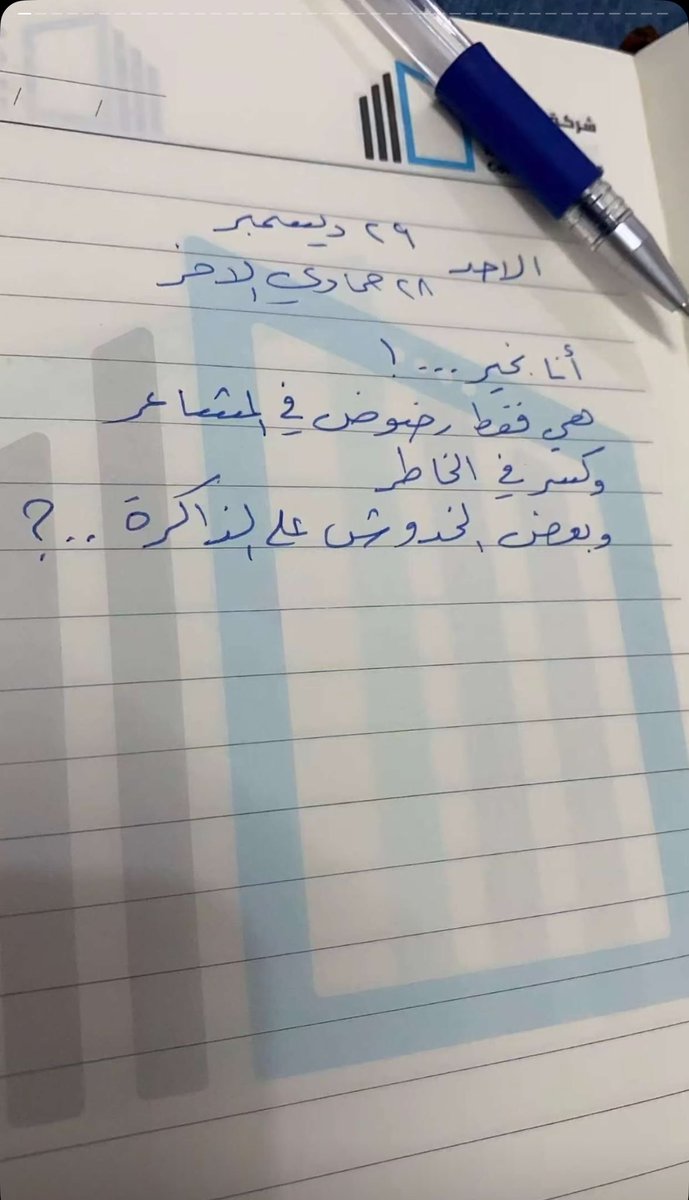 شركة
٢٩ ديسمبر
الاحد
٢٨ جمادي الاخر
أنا بخير ... !
هي فقط رضوض في المشاعر
وكسر في الخاطر
وبعض الخدوش على الذاكرة ..؟